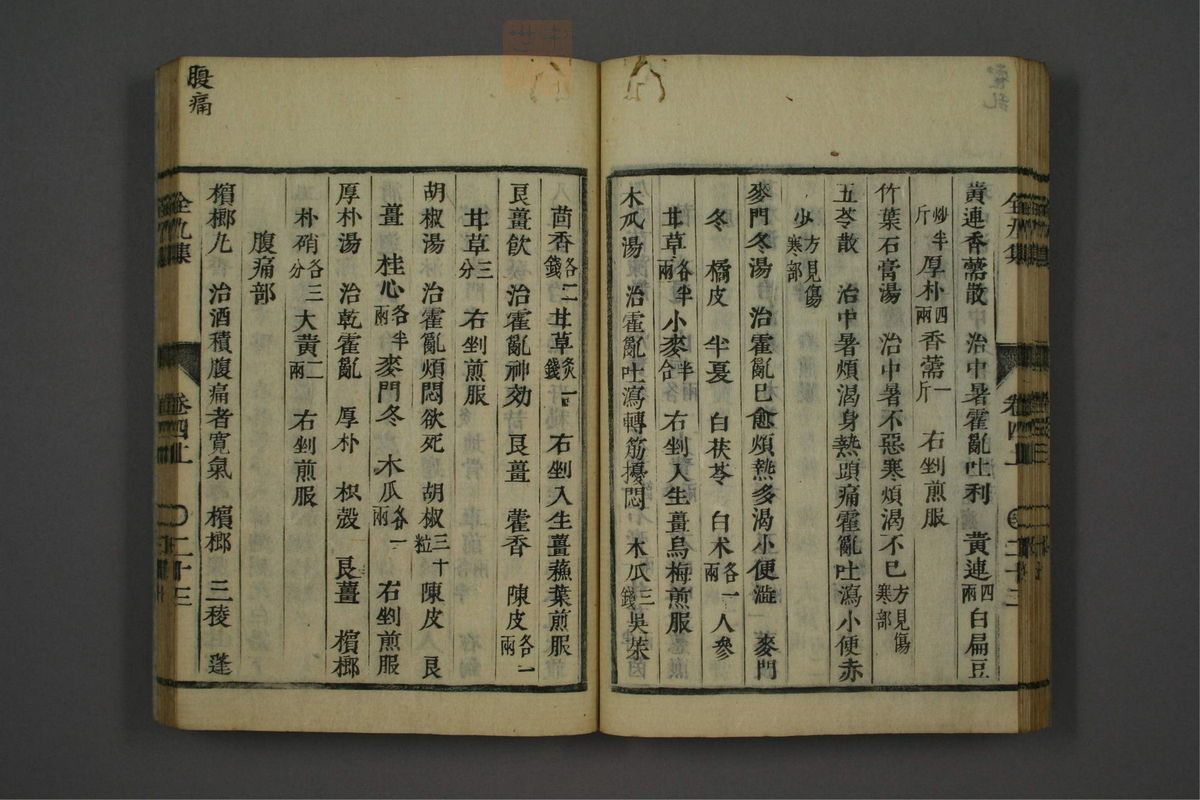 霍乱
黄連香薷散 治中暑霍亂吐利 黄連四兩 白扁豆
炒半斤 厚朴四兩 香薷一斤 右剉煎服
竹葉石膏湯 治中暑不惡寒煩渴不已方見傷寒部
五苓散 治中暑煩渴身熱頭痛霍亂吐瀉小便赤
少方見傷寒部
麥門冬湯 治霍亂已愈煩熱多渴小便澁 麥門
冬 橘皮 半夏 白茯苓 白朮各一兩 人參
甘草各半兩 小麥半合 右剉入生薑烏梅煎服
木瓜湯 治霍亂吐瀉轉筋擾悶 木瓜三錢 吳茱
全九集 卷四上
茴香各二錢 甘草炙一錢 右剉入生薑蘓葉煎服
良薑飲 治霍亂神効 良薑 藿香 陳皮各一兩
甘草三分 右剉煎服
胡椒湯 治霍亂煩悶欲死 胡椒三十粒 陳皮 良
薑 桂心各半兩 麥門冬 木瓜各一兩 右剉煎服
厚朴湯 治乾霍亂 厚朴 枳殼 良薑 檳榔
朴硝各三分 大黄二兩 右剉煎服
腹痛部
檳榔丸 治酒積腹痛者寛氣 檳榔 三稜 蓬
全九集 卷四上 〇二十三
腹痛